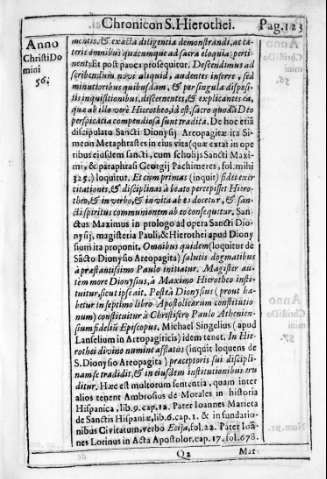 Chronicon S. Hierothei. Pag. 123
Anno
Christi Do
mini
56.
mentis, & exacta diligentia demonstrandi, ac ca-
teris omnibus quæcunque ad sacra eloquia perti-
nent. Et post pauca prosequitur. Desendimus ad
scribendum novi aliquid, audentes inserre, sed
minutioribus quibusdam, & per singula disposi-
tis inquisitionibus, disserentes, & explicantes ea,
quæ ab illo vero Hierotheo, id est, sacro quodã Deo
perspicatia compendiosa sunt tradita. De hoc etiã
discipulatu Sancti Dionysij Areopagitæ ita Si-
meon Metaphrastes in eius vita (quæ extat in ope
ribus eiusdem sancti, cum scholijs Sancti Maxi-
mi, & paraphrasi Georgij Pachimeræ, fol. mihi
325.) loquitur. Et cum primas (inquit) fidei exer
citationes, & disciplinas à beato percepisset Hiero-
theo, & in verbo, & in vita ab eo docetur, & san-
cti spiritus communionem ab eo consequutur. San-
ctus Maximus in prologo ad opera Sancti Dio-
nysij, magisteria Pauli, & Hierothei apud Diony
sium ita proponit. Omnibus quidem (loquitur de
Sãcto Dionysio Areopagita) salutis dogmatibus
à præstantissimo Paulo initiatur. Magister au-
tem more Dionysius, à Maximo Hierotheo insti-
tuitur, sicut ipse ait. Posteà Dionysius (prout ha-
betur in septimo libro Apostolicarum constitutio
num) constituitur à Christifero Paulo Athenien-
sium fidelium Episcopus. Michael Singelius (apud
Lanselium in Areopagiticis) idem tenet. In Hie-
rothei divino numine afflatus (inquit loquens de
S. Dionysio Areopagita) præceptoris sui discipli-
nam se tradidit, & in eiusdem institutionibus eru
ditur. Hæc est multorum sententia, quam inter
alios tenent Ambrosius de Morales in historia
Hispanica, lib. 9. cap. 12. Pater Ioannes Marieta
de Sanctis Hispaniæ, lib. 6. cap. 1. & in fundatio-
nibus Civitatum, verbo Ecija, fol. 22. Pater Ioan
nes Lorinus in Acta Apostolor. cap. 17. fol. 678.
Q2 Mar-